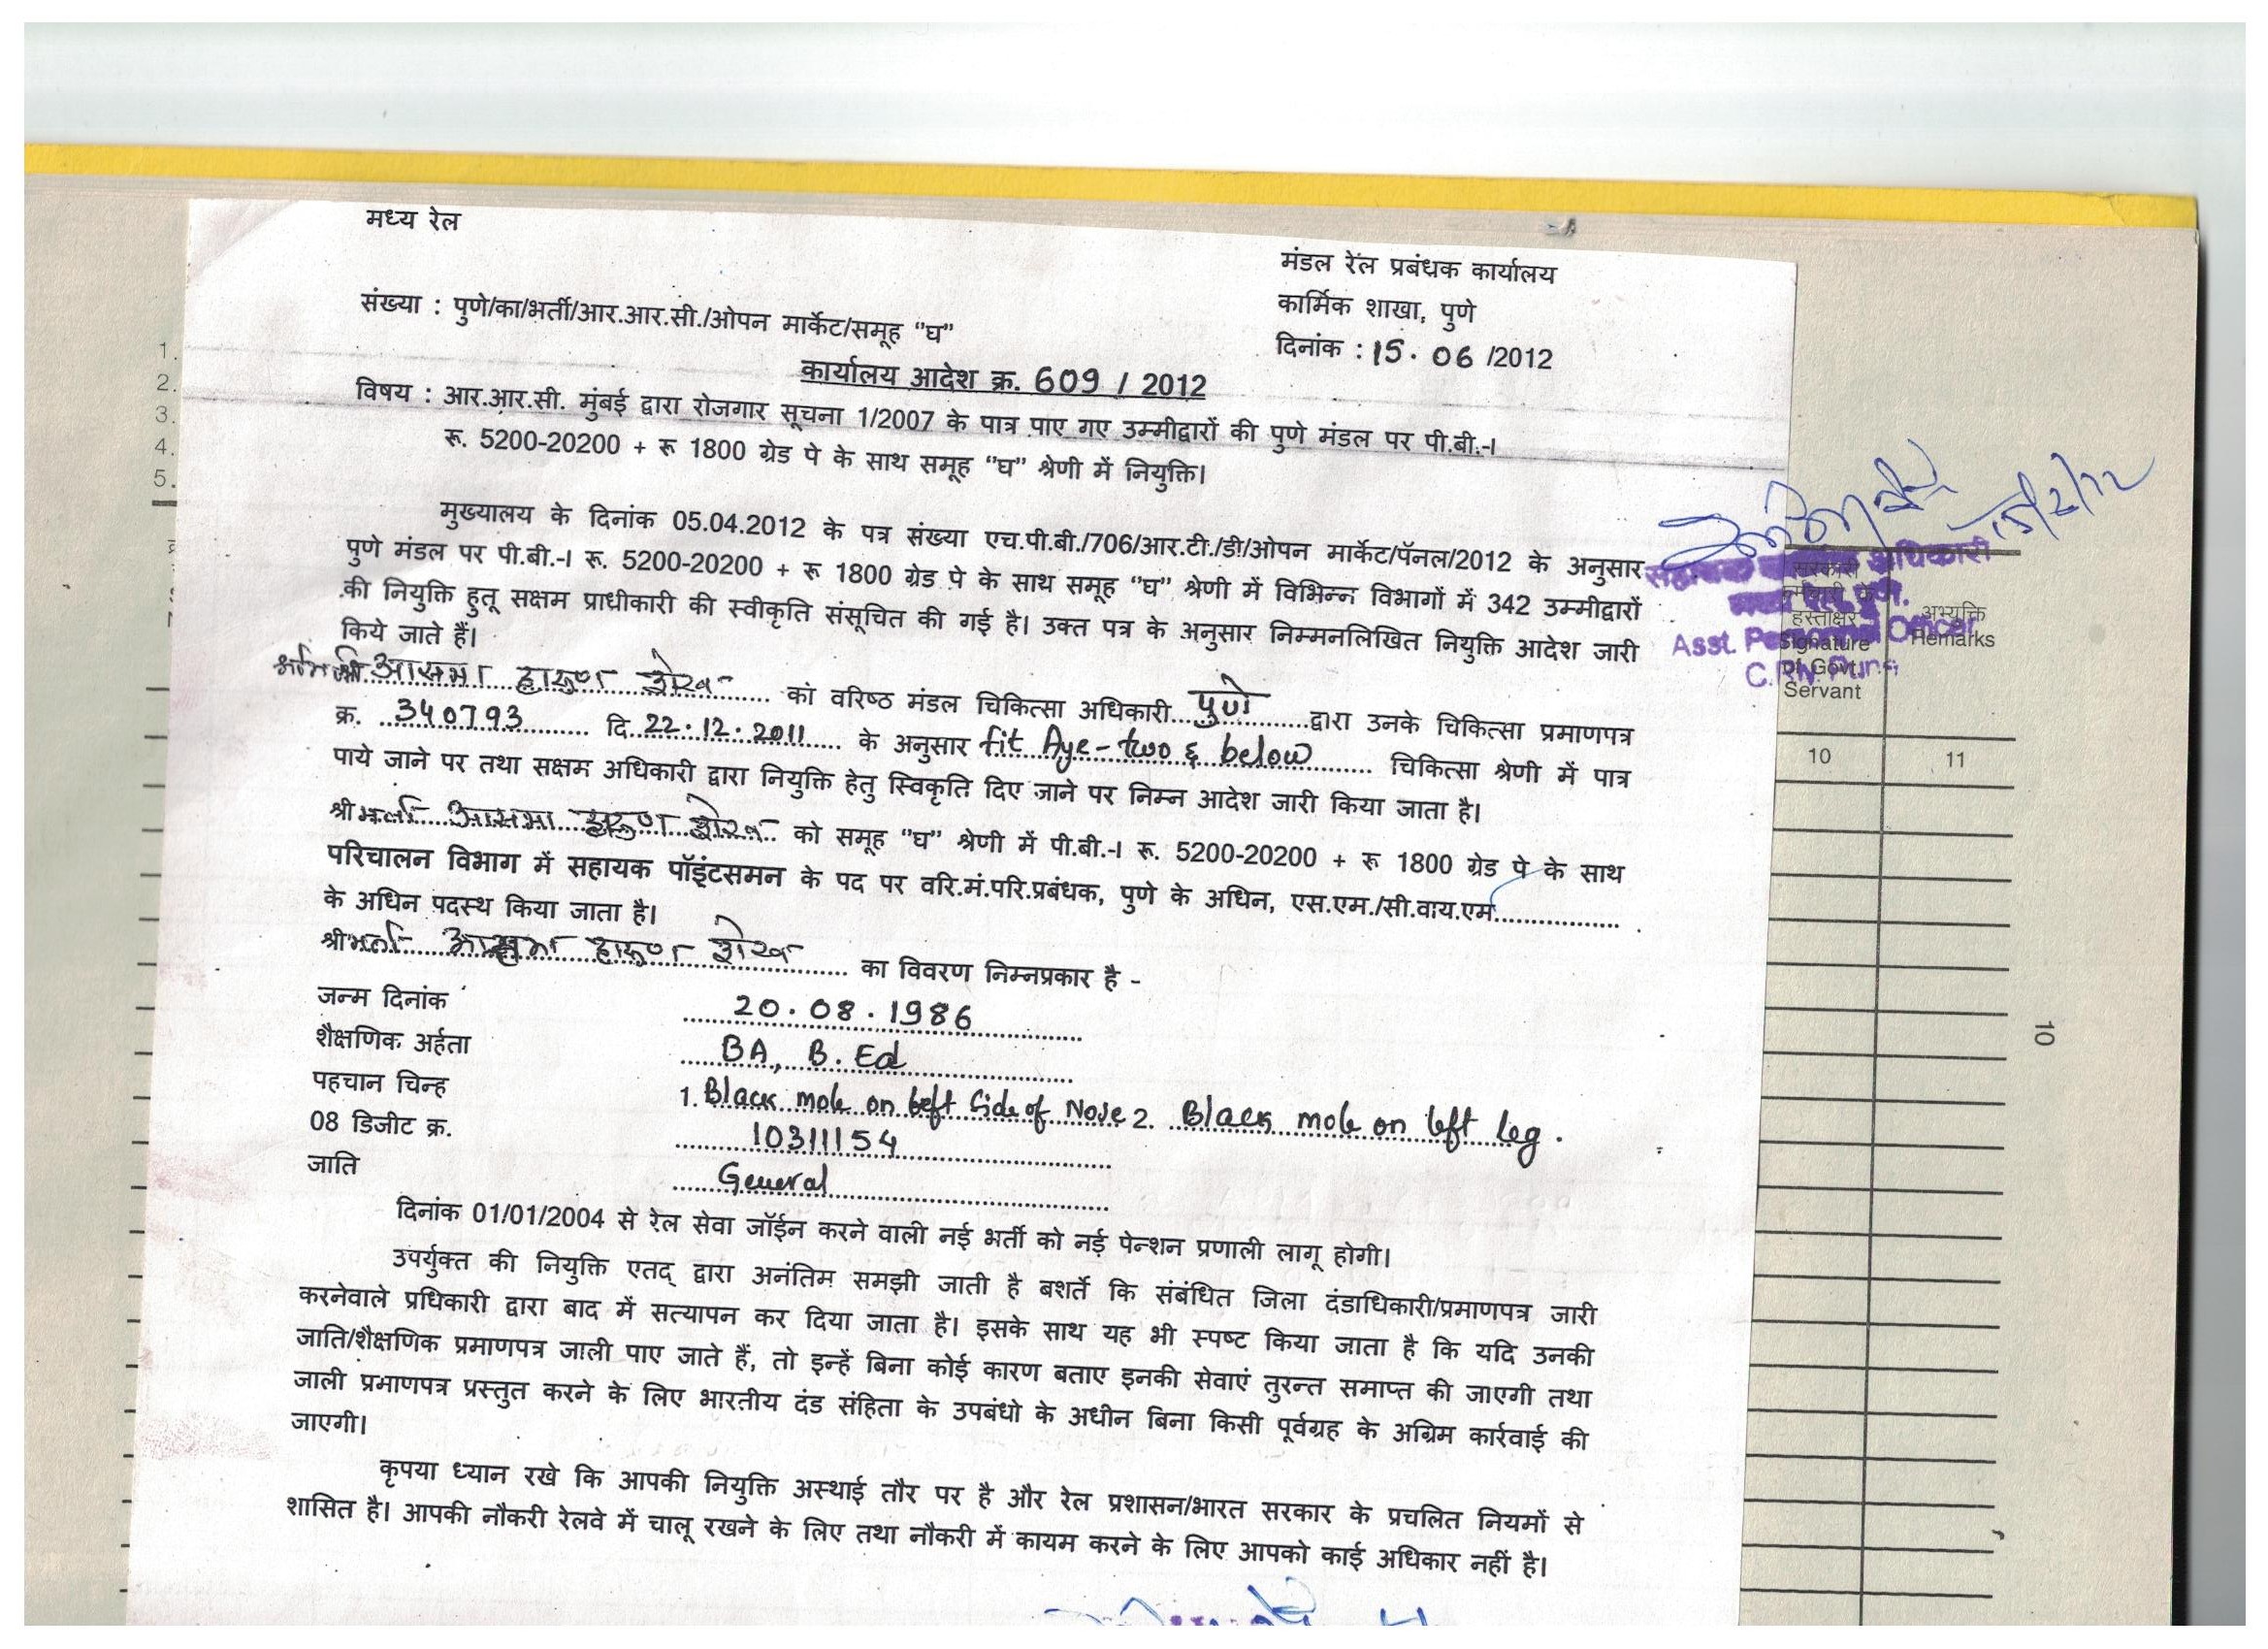 मध्य रेल
मंडल रेल प्रबंधक कार्यालय
कार्मिक शाखा, पुणे
संख्या : पुणे/का/भर्ती/आर.आर.सी./ओपन मार्केट/समूह "घ"
दिनांक : 15. 06 /2012
कार्यालय आदेश क्र. 609 / 2012
विषय : आर.आर.सी. मुंबई द्वारा रोजगार सूचना 1/2007 के पात्र पाए गए उम्मीद्वारों की पुणे मंडल पर पी.बी.-I
रू. 5200-20200 + रू 1800 ग्रेड पे के साथ समूह "घ" श्रेणी में नियुक्ति।
मुख्यालय के दिनांक 05.04.2012 के पत्र संख्या एच.पी.बी./706/आर.टी./डी/ओपन मार्केट/पॅनल/2012 के अनुसार
पुणे मंडल पर पी.बी.-I रू. 5200-20200 + रू 1800 ग्रेड पे के साथ समूह "घ" श्रेणी में विभिन्न विभागों में 342 उम्मीद्वारों
की नियुक्ति हुतू सक्षम प्राधीकारी की स्वीकृति संसूचित की गई है। उक्त पत्र के अनुसार निम्मनलिखित नियुक्ति आदेश जारी
किये जाते हैं।
आसमा हारूण शेख को वरिष्ठ मंडल चिकित्सा अधिकारी पुणे द्वारा उनके चिकित्सा प्रमाणपत्र
क्र. 340793 दि. 22.12.2011 के अनुसार fit Aye-two & below चिकित्सा श्रेणी में पात्र
पाये जाने पर तथा सक्षम अधिकारी द्वारा नियुक्ति हेतु स्विकृति दिए जाने पर निम्न आदेश जारी किया जाता है।
श्रीमती आसमा हारूण शेख को समूह "घ" श्रेणी में पी.बी.-I रू. 5200-20200 + रू 1800 ग्रेड पे के साथ
परिचालन विभाग में सहायक पॉइंटसमन के पद पर वरि.मं.परि.प्रबंधक, पुणे के अधिन, एस.एम./सी.वाय.एम
के अधिन पदस्थ किया जाता है।
श्रीमती आसमा हारूण शेख का विवरण निम्नप्रकार है -
जन्म दिनांक 20.08.1986
शैक्षणिक अर्हता BA, B.Ed
पहचान चिन्ह 1. Black mole on left side of Nose 2. Black mole on left leg.
08 डिजीट क्र. 10311154
जाति General
दिनांक 01/01/2004 से रेल सेवा जॉईन करने वाली नई भर्ती को नई पेन्शन प्रणाली लागू होगी।
उपर्युक्त की नियुक्ति एतद् द्वारा अनंतिम समझी जाती है बशर्ते कि संबंधित जिला दंडाधिकारी/प्रमाणपत्र जारी
करनेवाले प्रधिकारी द्वारा बाद में सत्यापन कर दिया जाता है। इसके साथ यह भी स्पष्ट किया जाता है कि यदि उनकी
जाति/शैक्षणिक प्रमाणपत्र जाली पाए जाते हैं, तो इन्हें बिना कोई कारण बताए इनकी सेवाएं तुरन्त समाप्त की जाएगी तथा
जाली प्रमाणपत्र प्रस्तुत करने के लिए भारतीय दंड संहिता के उपबंधो के अधीन बिना किसी पूर्वग्रह के अग्रिम कार्रवाई की
जाएगी।
कृपया ध्यान रखे कि आपकी नियुक्ति अस्थाई तौर पर है और रेल प्रशासन/भारत सरकार के प्रचलित नियमों से
शासित है। आपकी नौकरी रेलवे में चालू रखने के लिए तथा नौकरी में कायम करने के लिए आपको काई अधिकार नहीं है।
1.
2.
3.
4.
5.
अधिकारी
Asst. Personnel Officer
हस्ताक्षर
Signature
of Govt.
Servant
अभ्युक्ति
Remarks
10
11
10